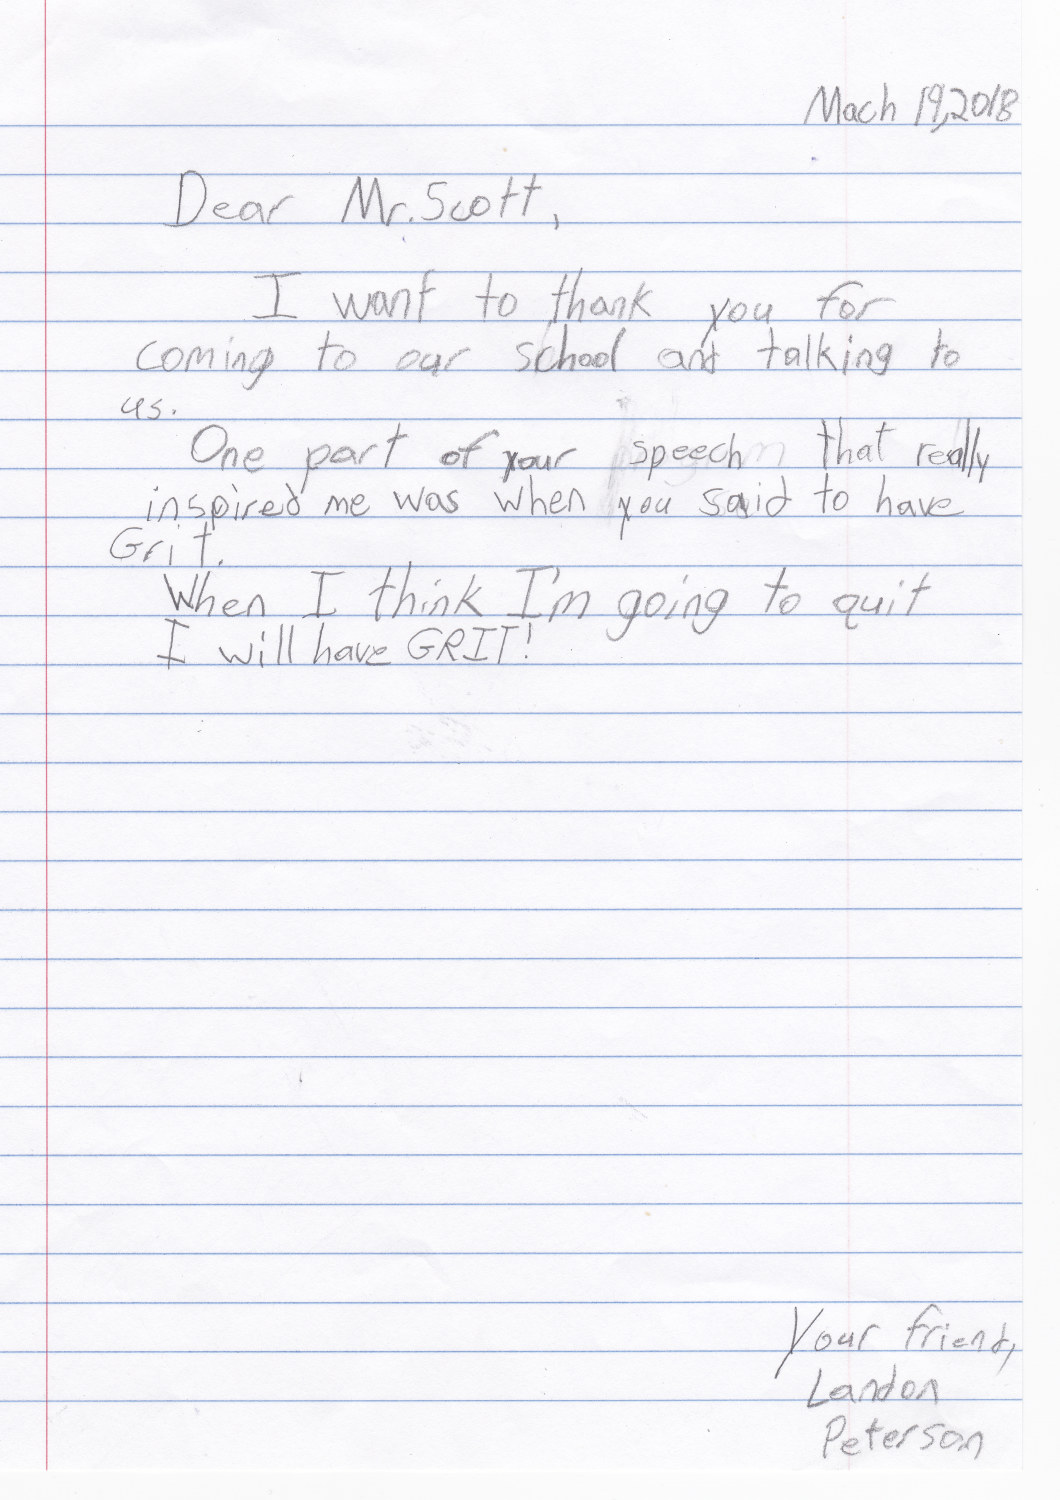 Mach 19, 2018
Dear Mr. Scott,
I want to thank you for
coming to our school and talking to
us.
One part of your speech that really
inspired me was when you said to have
Grit.
When I think I'm going to quit
I will have GRIT!
Your friend,
Landon
Peterson